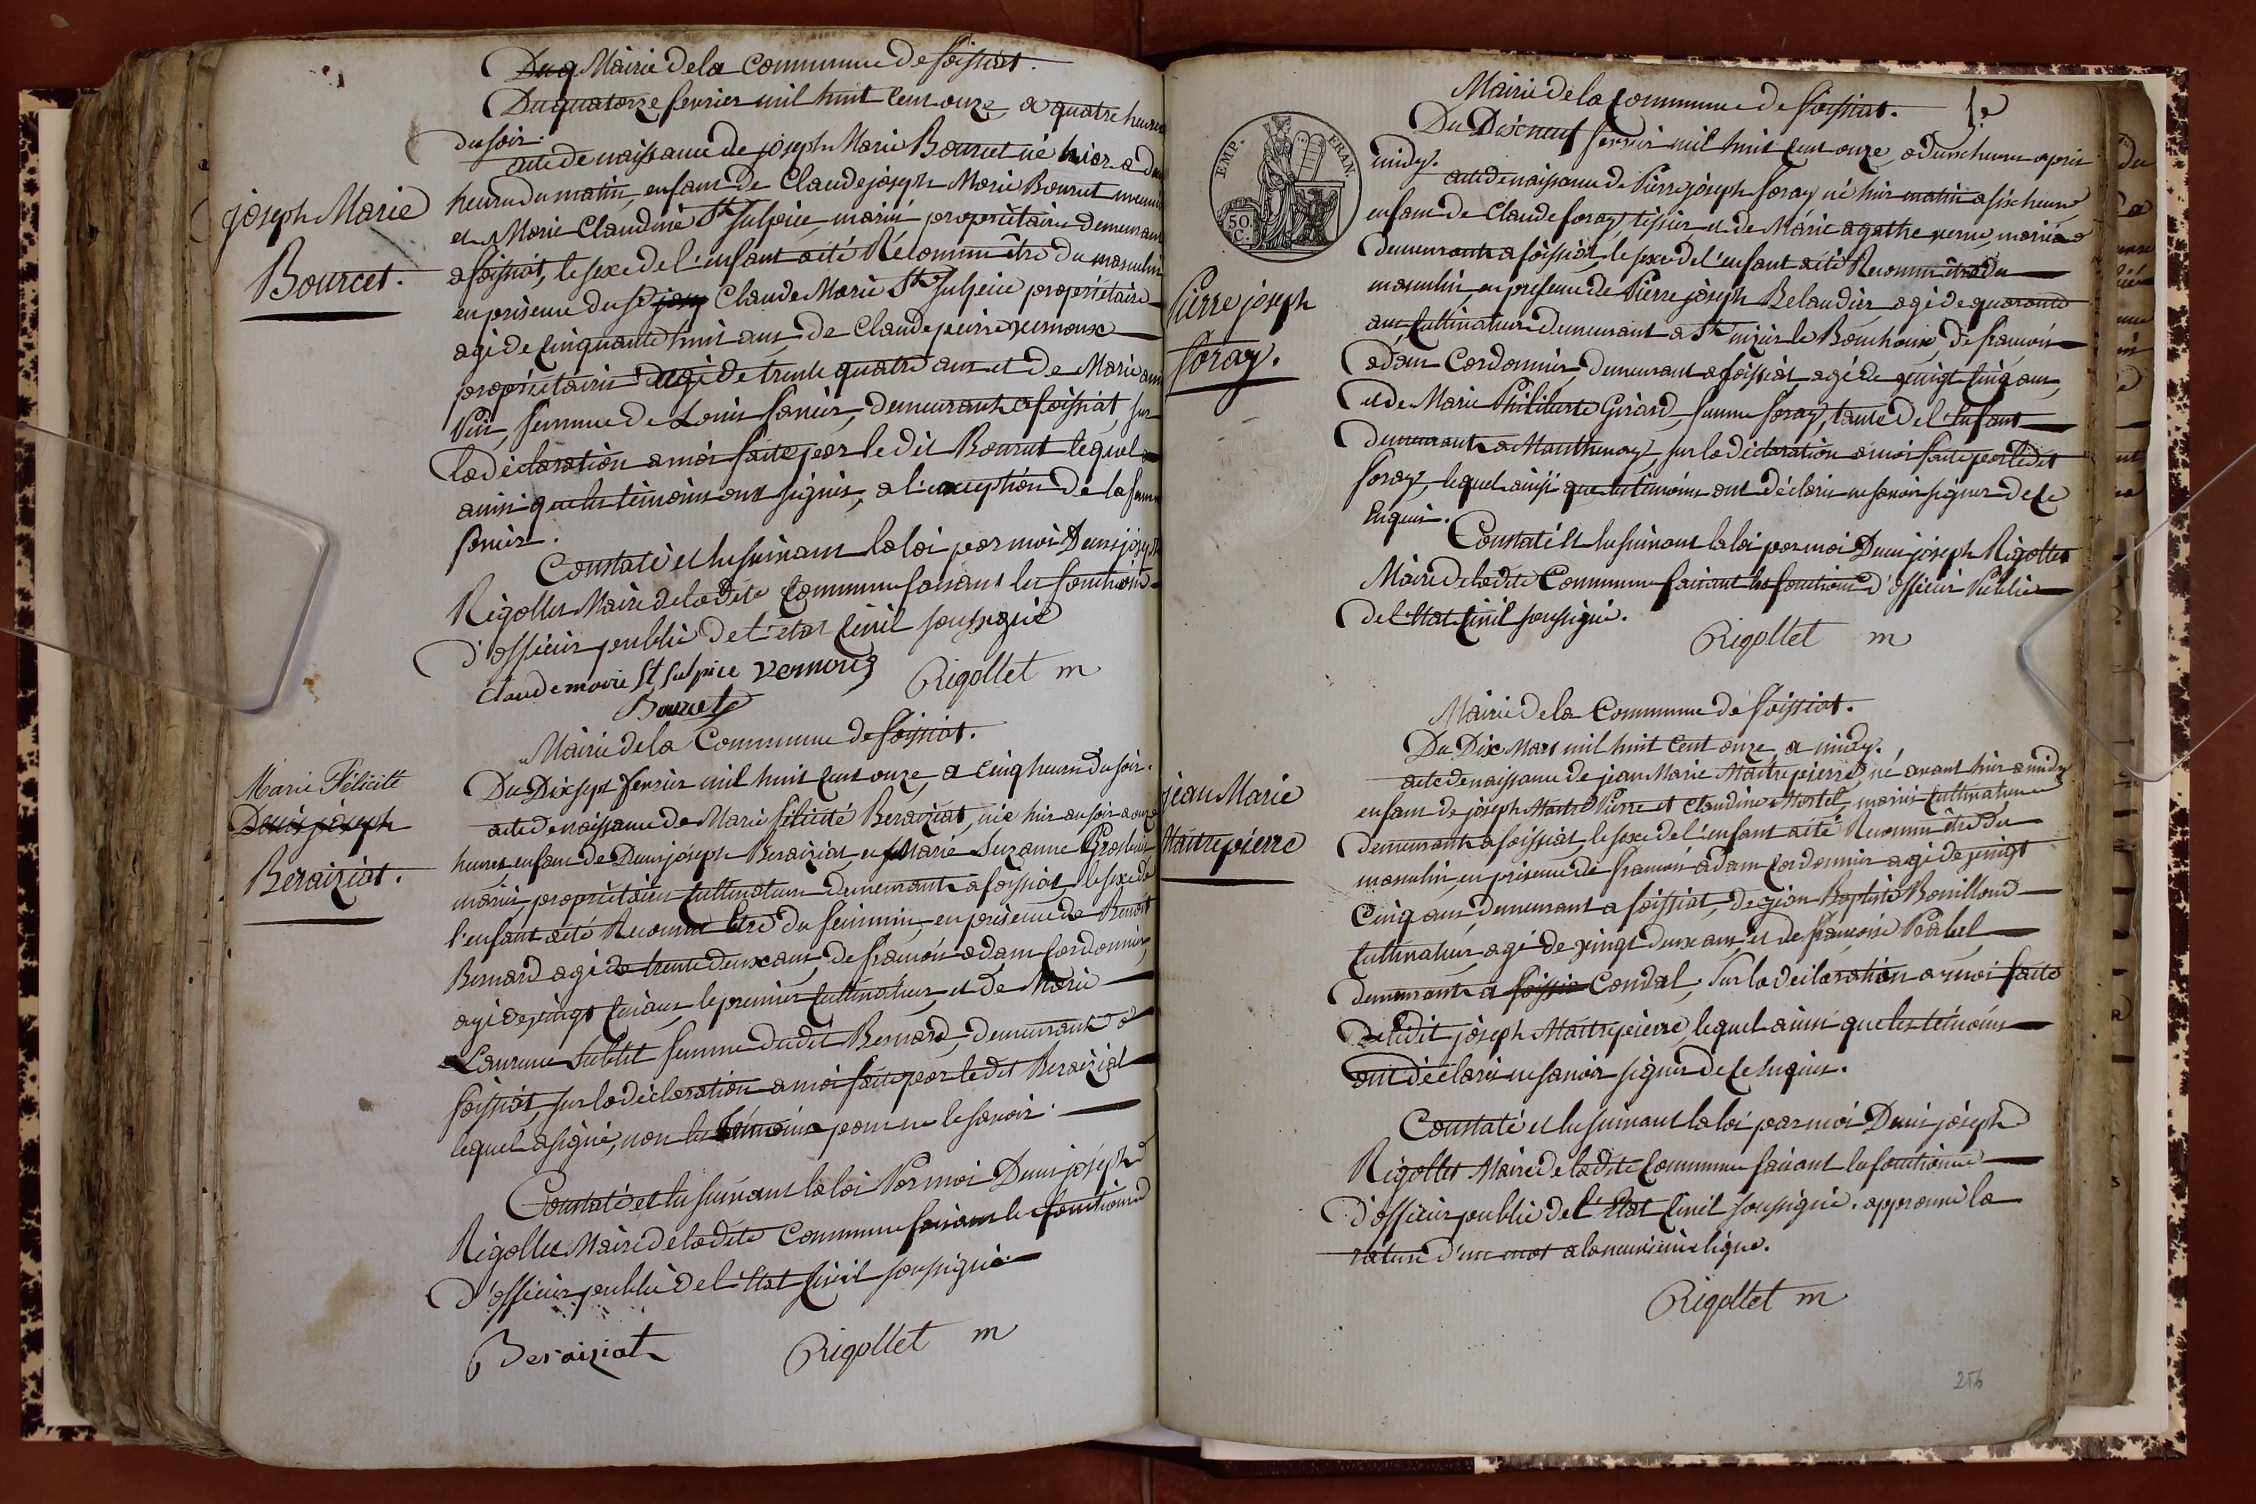 Mairie de la Commune de foissiat.
Du quatorze fevrier mil huit Cent onze a quatre heures
du soir.
acte de naissance de joseph Marie Bourcet né hier a
heure du matin, enfant de Claude joseph Marie Bourcet
et Marie Claudine St Sulpice, mariés propriétaires demeurant
a foissiat, le sexe de l'enfant a été Reconnu être du masculin
en présence du Claude Marie St Sulpice propriétaire
agé de Cinquante huit ans de Claude pierre vernoux
propriétaire agé de trente quatre ans et de Marie
femme de Louis demeurants a foissiat, sur
la déclaration a moi faite par le dit Bourcet lequel
ainsi que les témoins ont signés, a l'exception de la femme
Constaté et lu suivant la loi par moi Denis joseph
Rigollet Maire de ladite Commune faisant les fonctions
d'officier public de l'état Civil soussigné
Claude marie St Sulpice vernoux Rigollet m
Bourcet
joseph Marie
Bourcet.
Mairie de la Commune de foissiat.
Du Dix sept fevrier mil huit Cent onze, a Cinq heures du soir.
acte de naissance de Marie félicité Beraiziat, née hier au soir a onze
heures, enfant de Denis joseph Beraiziat et Marie Suzanne
mariés propriétaires Cultivateurs demeurants a foissiat, le sexe de
l'enfant a été Reconnu être du féminin, en présence de Benoit
Bernard agé de trente deux ans, de françois adam Cordonnier,
agé de vingt Cinq ans, le premier Cultivateur, et de Marie
Laurence Sublet femme dudit Bernard, demeurants a
foissiat, sur la déclaration a moi faite par le dit Beraiziat
lequel a signé, non les témoins pour ne le savoir.
Constaté et lu suivant la loi Par moi Denis joseph
Rigollet Maire de ladite Commune faisant les fonctions
d'officier public de l'état Civil soussigné.
Beraiziat Rigollet m
Marie Félicité
Denis joseph
Beraiziat.
Mairie de la Commune de foissiat.
Du Dix neuf fevrier mil huit Cent onze, a deux heures après
midy.
acte de naissance de Pierre joseph foray né hier matin a six heures
enfant de Claude foray, tissier et de Marie agathe perne, mariés
demeurants a foissiat, le sexe de l'enfant a été Reconnu être du
masculin, en présence de Pierre joseph Belaudier, agé de quarante
ans, Cultivateur demeurant a St nizier le Bouchoux, de françois
adam Cordonnier, demeurant a foissiat agé de vingt Cinq ans,
et de Marie Philiberte Girard, femme foray, tante de l'enfant
demeurante a Mantenay, sur la déclaration a moi faite par le dit
foray, lequel ainsi que les témoins ont déclaré ne savoir signer de Ce
Enquis.
Constaté et lu suivant la loi par moi Denis joseph Rigollet
Maire de ladite Commune faisant les fonctions d'officier Public
de l'état Civil soussigné.
Rigollet m
EMP. FRAN.
50 C.
Pierre joseph
foray.
Mairie de la Commune de foissiat.
Du Dix Mars mil huit Cent onze, a midy.
acte de naissance de jean Marie Maitrepierre, né avant hier a midy
enfant de joseph Maitre Pierre et Claudine Mortel, mariés Cultivateurs
demeurants a foissiat, le sexe de l'enfant a été Reconnu être du
masculin, en présence de françois adam Cordonnier agé de vingt
Cinq ans, demeurant a foissiat, de jean Baptiste Bouilloud
Cultivateur agé de vingt deux ans et de françoise
demeurants a foissia Condal, sur la déclaration a moi faite
de ledit joseph Maitrepierre, lequel ainsi que les témoins
ont déclaré ne savoir signer de Ce Enquis.
Constaté et lu suivant la loi par moi Denis joseph
Rigollet Maire de ladite Commune faisant les fonctions
d'officier public de l'Etat Civil soussigné. approuvé la
rature d'un mot a la neuvieme ligne.
Rigollet m
jean Marie
Maitrepierre
256